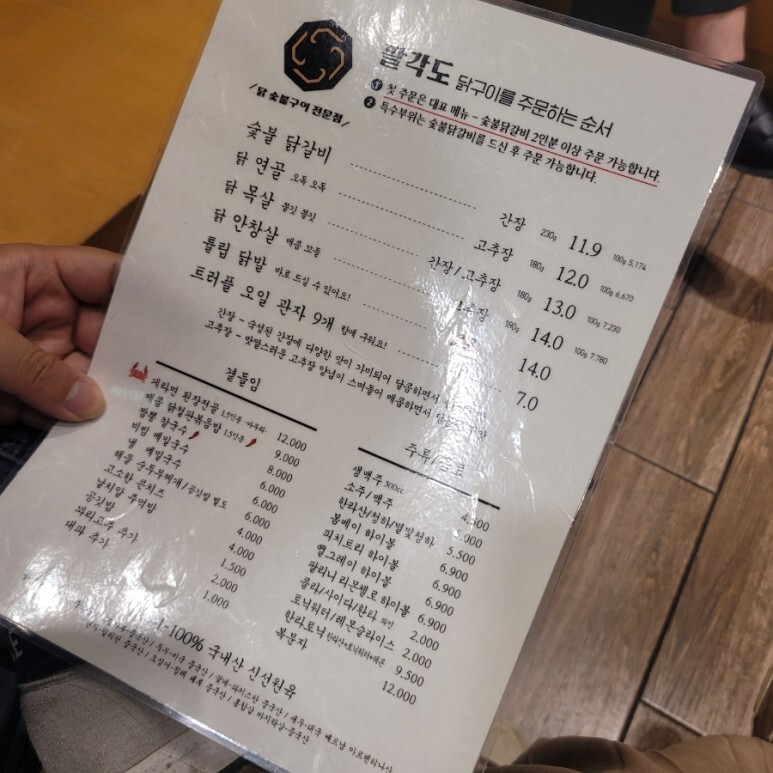 팔각도 닭구이를 주문하는 순서
1 첫 주문은 대표 메뉴 - 숯불닭갈비 2인분 이상 주문 가능합니다.
2 특수부위는 숯불닭갈비를 드신 후 주문 가능합니다.
/ 닭 숯불구이 전문점 /
숯불 닭갈비 간장 230g 11.9 100g 5,174
닭 연골 오독 오독 고추장 180g 12.0 100g 6,670
닭 목살 쫄깃 쫄깃 간장/고추장 180g 13.0 100g 7,230
닭 안창살 매콤 꼬들 고추장 180g 14.0 100g 7,780
튤립 닭발 바로 드실 수 있어요! 14.0
트러플 오일 관자 9개 함께 구워요! 7.0
간장 - 숙성된 간장에 다양한 맛이 가미되어 달콤하면서
고추장 - 맛깔스러운 고추장 양념이 스며들어 매콤하면서
곁들임
게라면 된장전골 1.5인분 12.000
매콤 닭철판볶음밥 1.5인분 9.000
짬뽕 칼국수 8.000
비빔 메밀국수 6.000
냉 메밀국수 6.000
해물 순두부찌개/공깃밥 별도 6.000
고소한 콘치즈 4.000
날치알 주먹밥 4.000
공깃밥 1.500
꽈리고추 추가 2.000
대파 추가 1.000
주류/음료
생맥주 500cc
소주/맥주
한라산/청하/별빛청하 5.500
봄베이 하이볼 6.900
피치트리 하이볼 6.900
얼그레이 하이볼 6.900
팔리니 리몬첼로 하이볼 6.900
콜라/사이다/환타 파인 2.000
토닉워터/레몬슬라이스 2.000
한라토닉 한라산+토닉워터+레몬 9.500
복분자 12.000
100% 국내산 신선원육